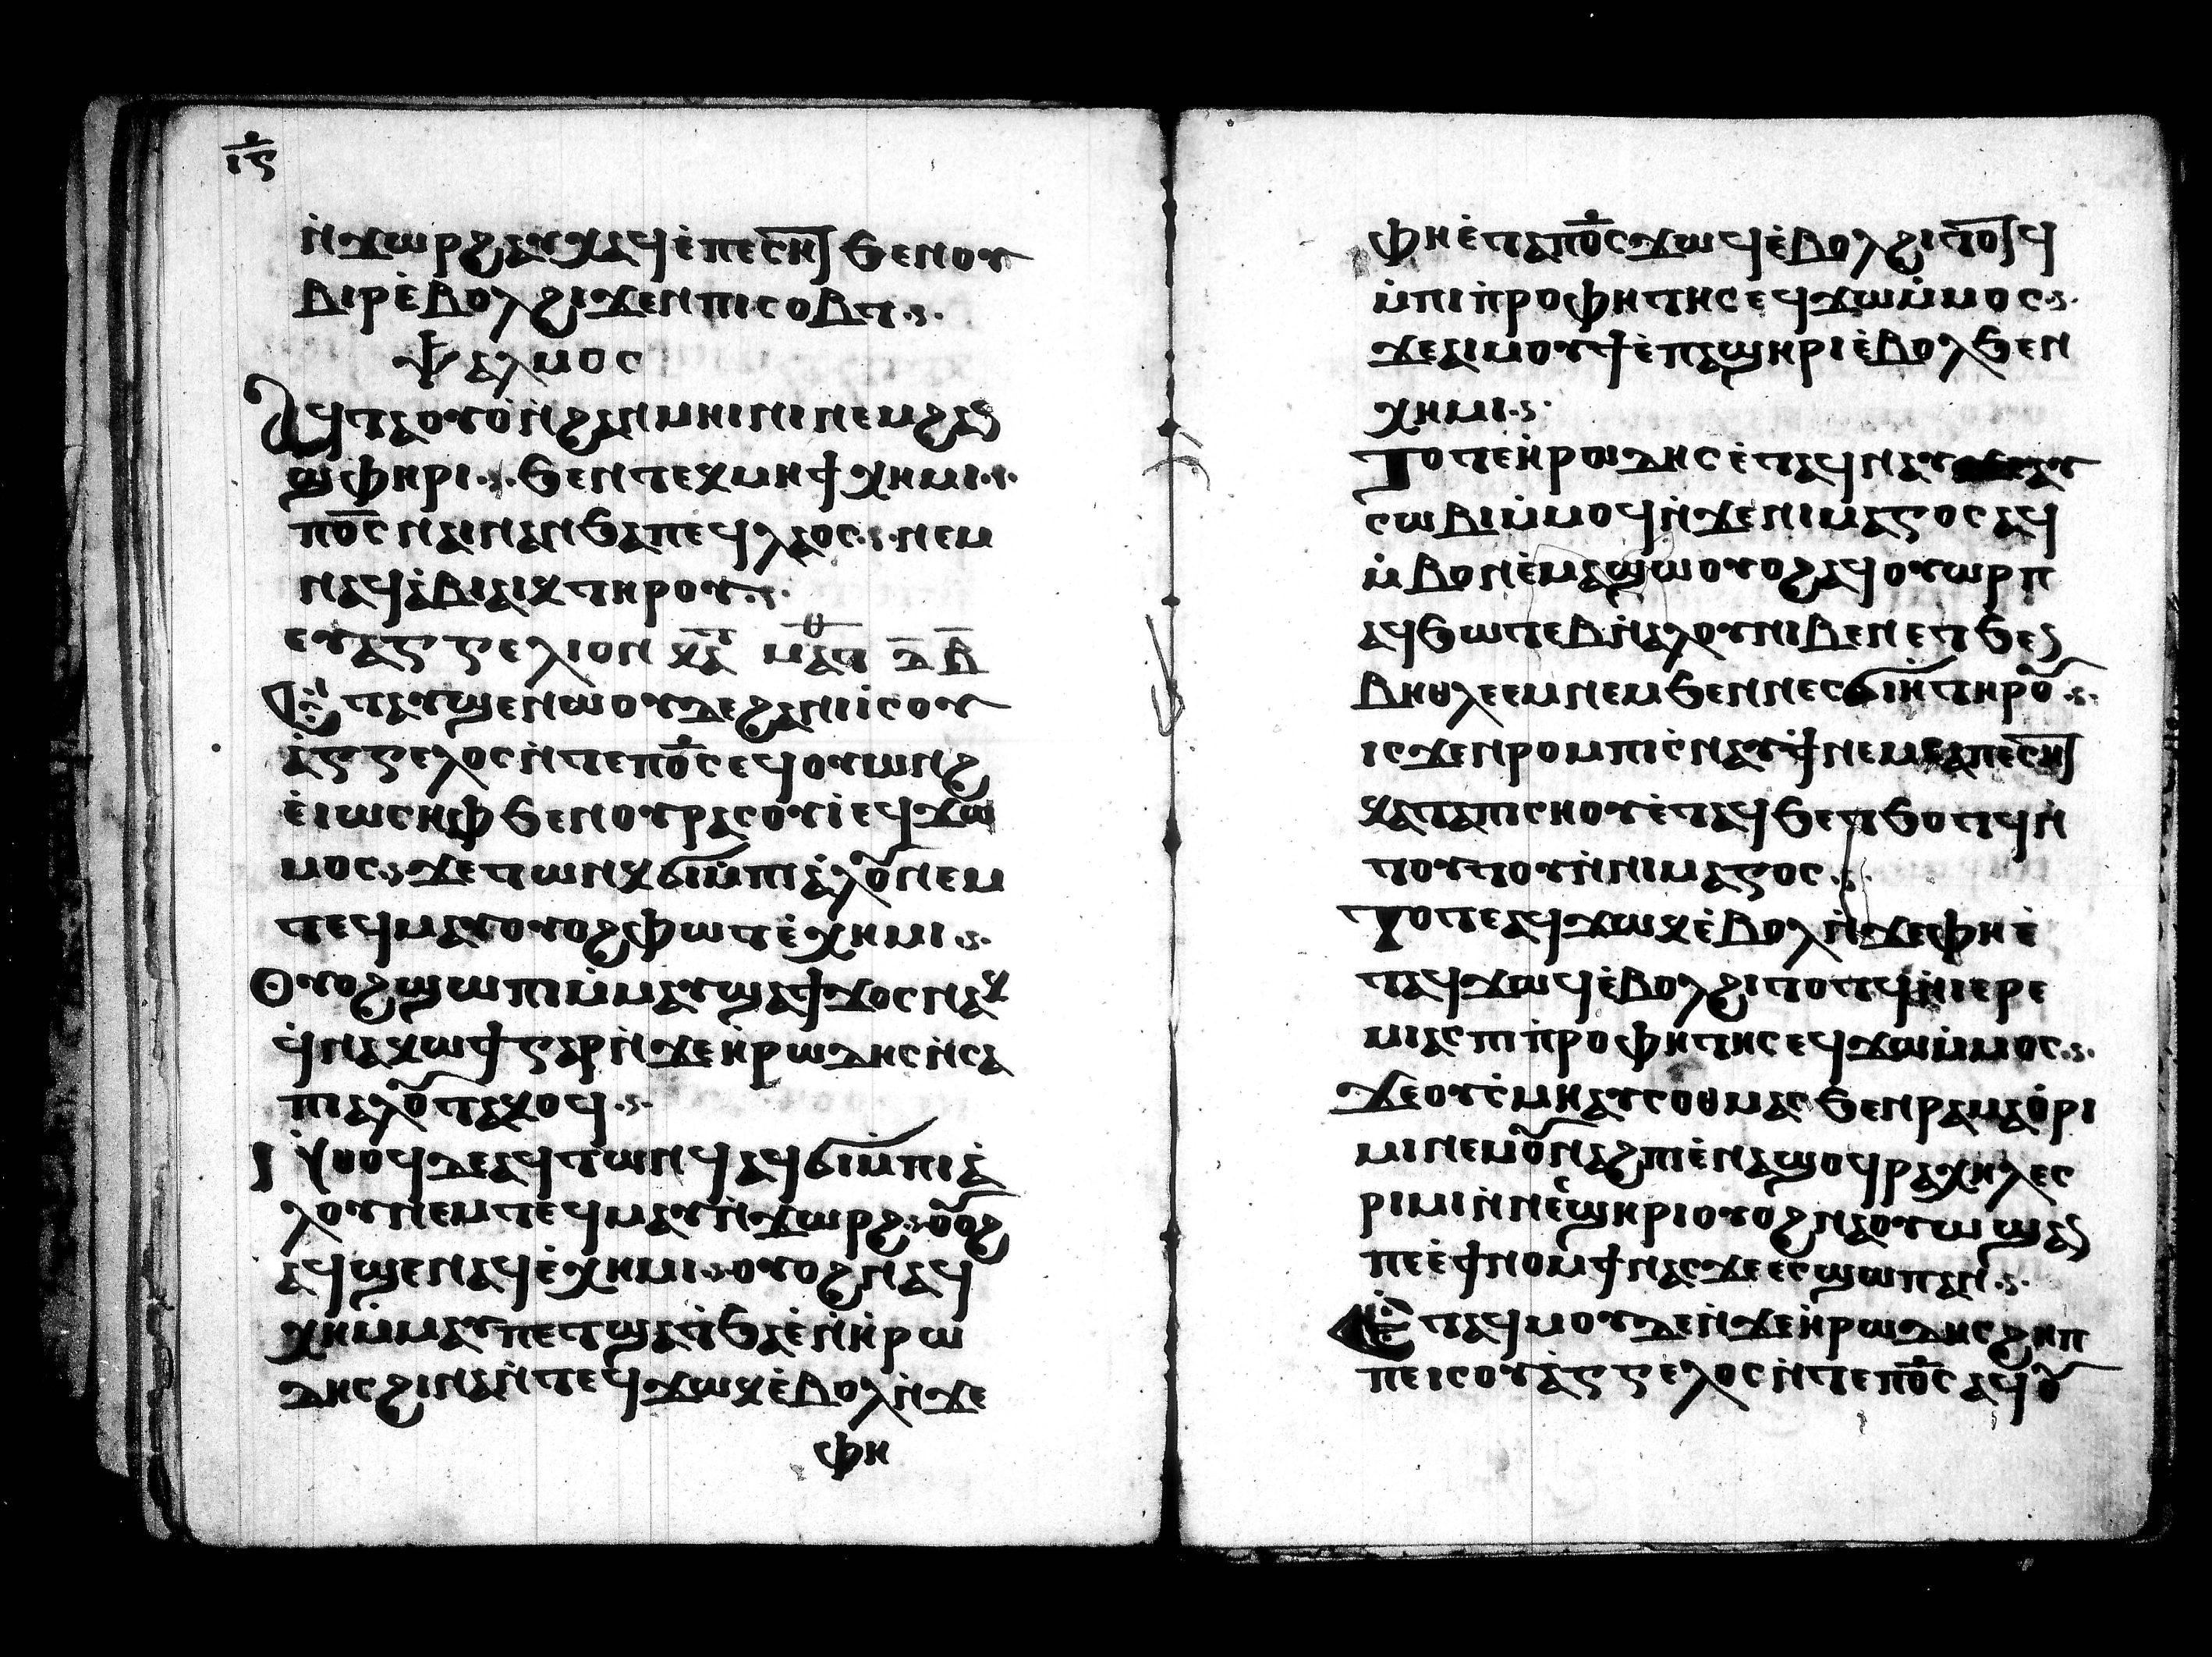 ⲓ̅ⲋ̅
ⲛ̀ϫⲱⲣϩⲁⲩⲭⲁϥⲉ̀ⲡⲉⲥⲏ̅ϧⲉⲛⲟⲩ
ⲃⲓⲣⲉ̀ⲃⲟⲗϩⲓϫⲉⲛⲡⲓⲥⲟⲃⲧ
ⲯⲁⲗⲙⲟⲥ
ⲁϥⲧⲁⲟⲩⲟ̀ⲛ̀ϩⲁⲛⲙⲏⲓⲛⲓⲛⲉⲙϩⲁⲛ
ϣⲫⲏⲣⲓ ϧⲉⲛⲧⲉⲕⲙⲏϯⲭⲏⲙⲓ
ⲡⲟ̅ⲥⲛⲁⲓⲛⲁⲛϧⲁⲡⲉϥⲗⲁⲟⲥ ⲛⲉⲙ
ⲛⲁϥⲁ̀ⲃⲓⲁⲓⲕⲧⲏⲣⲟⲩ
ⲉⲩⲁⲅⲅⲉⲗⲓⲟⲛ ⲕⲁ̅ⲧ̅ ⲙⲁⲧ̅ⲑ ⲇ̅ ⲃ̅
ⲉ̀ⲧⲁⲩϣⲉⲛⲱⲟⲩⲇⲉϩⲁⲛⲓⲓ̀ⲥⲟⲩ
ⲁ̀ⲅⲅⲉⲗⲟⲥⲛ̀ⲧⲉⲡⲟ̅ⲥⲉϥⲟⲩⲱⲛϩ
ⲉ̀ⲓⲱⲥⲏⲫϧⲉⲛⲟⲩⲣⲁⲥⲟⲩⲓ̀ⲉϥϫⲱ
ⲙⲟⲥ ϫⲉⲧⲱⲛⲕϭⲓⲙ̀ⲡⲓⲁ̀ⲗⲟⲩⲛⲉⲙ
ⲧⲉϥⲙⲁⲩⲟⲩⲟϩⲫⲱⲧⲉ̀ⲭⲏⲙⲓ
ⲟⲩⲟϩϣⲱⲡⲓⲙ̀ⲙⲁⲩϣⲁϯϫⲟⲥⲛⲁⲕ
ϥ̀ⲛⲁⲕⲱϯⲅⲁⲣⲛ̀ϫⲉⲏ̀ⲣⲱⲇⲏⲥⲛ̀ⲥⲁ
ⲡⲓⲁⲗⲟⲩⲧⲁⲕⲟϥ
ⲛ̀ⲑⲟϥⲇⲉⲁϥⲧⲱⲛϥⲁϥϭⲓⲙ̀ⲡⲓⲁ̀
ⲗⲟⲩⲛⲉⲙⲧⲉϥⲙⲁⲩⲛ̀ϫⲱⲣϩ ⲟⲩⲟϩ
ⲁϥϣⲉⲛⲁϥⲉ̀ⲭⲏⲙⲓ ⲟⲩⲟϩⲛⲁϥ
ⲭⲏⲙ̀ⲙⲁⲩⲡⲉⲧϣⲁⲧ̀ϧⲁⲉ̀ⲛ̀ⲏ̀ⲣⲱ
ⲇⲏⲥϩⲓⲛⲁⲛ̀ⲧⲉϥϫⲱⲕⲉ̀ⲃⲟⲗⲛ̀ϫⲉ
ⲫⲏ
ⲫⲏⲉ̀ⲧⲁⲡⲟ̅ⲥϫⲱϥⲉ̀ⲃⲟⲗϩⲓⲧⲟ̅ϥ
ⲙ̀ⲡⲓⲡ̀ⲣⲟⲫⲏⲧⲏⲥⲉϥϫⲱⲙ̀ⲙⲟⲥ
ϫⲉⲁⲓⲙⲟⲩϯⲉ̀ⲡⲁϣⲏⲣⲓⲉ̀ⲃⲟⲗϧⲉⲛ
ⲭⲏⲙⲓ
ⲧⲟⲧⲉⲏ̀ⲣⲱⲇⲏⲥⲉ̀ⲧⲁϥⲛⲁⲩ ⲁⲩ
ⲥⲱⲃⲓⲙ̀ⲙⲟϥⲛ̀ϫⲉⲛⲓⲙⲁⲅⲟⲥⲁϥ
ⲙ̀ⲃⲟⲛⲉ̀ⲙⲁϣⲱⲟⲩⲟϩⲁϥⲟⲩⲱⲣⲡ
ⲁϥϧⲱⲧⲉⲃⲛ̀ⲁⲗⲟⲩⲛⲓⲃⲉⲛⲉⲧϧⲉⲛ
ⲃⲏⲑⲗⲉⲉⲙⲛⲉⲙϧⲉⲛⲛⲉⲥϭⲓⲏ̀ⲧⲏⲣⲟⲩ
ⲓⲥϫⲉⲛⲣⲟⲙⲡⲓⲥ̀ⲛⲁⲩϯⲛⲉⲙⲥⲁⲡⲉⲥⲏ̅
ⲕⲁⲧⲁⲡⲓⲥⲛⲟⲩⲉ̀ⲧⲁϥϧⲉⲧϧⲟⲧϥⲛ̀
ⲧⲟⲩⲧⲟⲩⲛ̀ⲛⲓⲙⲁⲅⲟⲥ
ⲧⲟⲧⲉⲁϥϫⲱⲕⲉ̀ⲃⲟⲗⲛ̀ϫⲉⲫⲏⲉ̀
ⲧⲁϥϫⲱϥⲉ̀ⲃⲟⲗϩⲓⲧⲟⲧϥⲛ̀ⲓⲉⲣⲉ
ⲙⲓⲁⲥⲡⲓⲡ̀ⲣⲟⲫⲏⲧⲏⲥⲉϥϫⲱⲙ̀ⲙⲟⲥ
ϫⲉⲟⲩⲥ̀ⲙⲏⲁⲩⲥⲟⲑⲙⲁⲥϧⲉⲛⲣⲁⲙⲁⲟ̀ⲣⲓ
ⲙⲓⲛⲉⲙⲟⲩⲛⲁϩⲡⲓⲉ̀ⲛⲁϣⲟϥⲣⲁⲭⲏⲗⲉⲥ
ⲣⲓⲙⲓⲛ̀ⲛⲉⲥϣⲏⲣⲓⲟⲩⲟϩⲛⲁⲟⲩⲱϣⲁⲛ
ⲡⲉⲉ̀ϯⲛⲟⲙϯⲛⲁⲥϫⲉⲉⲥϣⲱⲡⲁⲛ
ⲉ̀ⲧⲁϥⲙⲟⲩⲇⲉⲛ̀ϫⲉⲏ̀ⲣⲱⲇⲏⲥϩⲏⲡ
ⲡⲉⲓⲥⲟⲩⲁ̀ⲅⲅⲉⲗⲟⲥⲛ̀ⲧⲉⲡⲟ̅ⲥⲁϥⲟⲩ